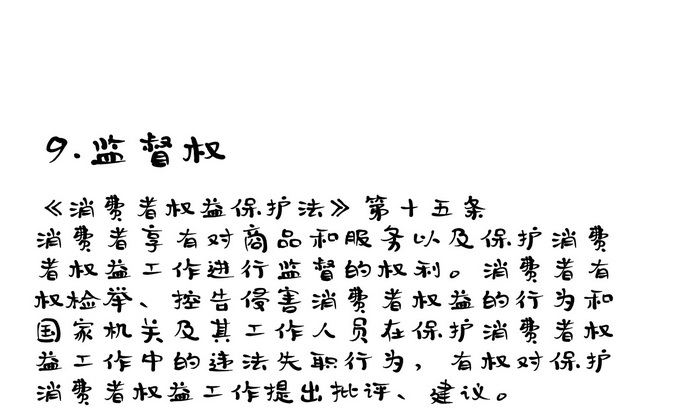 9.监督权
《消费者权益保护法》第十五条
消费者享有对商品和服务以及保护消费
者权益工作进行监督的权利。消费者有
权检举、控告侵害消费者权益的行为和
国家机关及其工作人员在保护消费者权
益工作中的违法失职行为，有权对保护
消费者权益工作提出批评、建议。